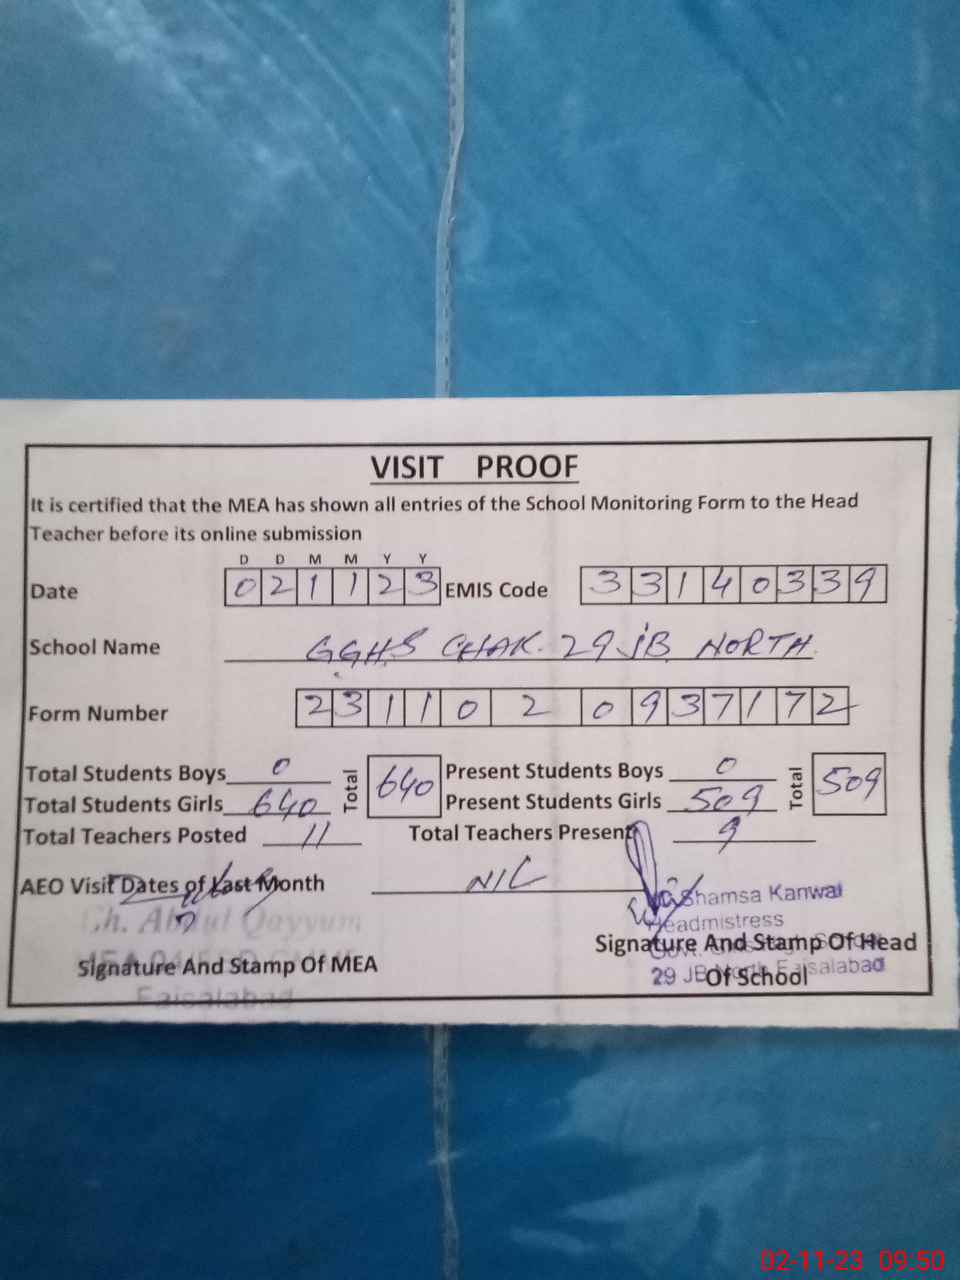 VISIT PROOF
It is certified that the MEA has shown all entries of the School Monitoring Form to the Head
Teacher before its online submission
D D M M Y Y
Date 0 2 1 1 2 3 EMIS Code 3 3 1 4 0 3 3 9
School Name GGHS CHAK. 29 JB NORTH
Form Number 2 3 1 1 0 2 0 9 3 7 1 7 2
Total Students Boys 0 Total 640 Present Students Boys 0 Total 509
Total Students Girls 640 Present Students Girls 509
Total Teachers Posted 11 Total Teachers Present 9
AEO Visit Dates of Last Month
Shamsa Kanwal
Ch. Abdul Qayyum
Headmistress
Signature And Stamp Of MEA
Signature And Stamp Of Head
Of School
29 JB North Faisalabad
Faisalabad
02-11-23 09:50